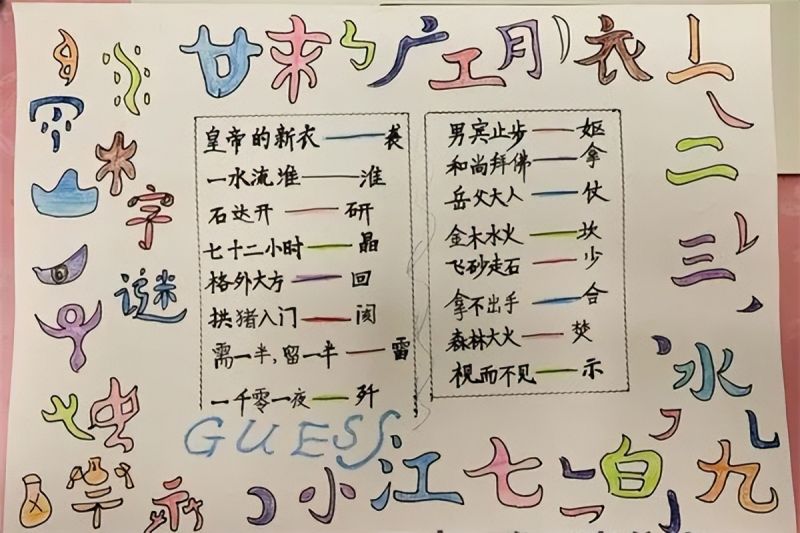 廿 广 工 月 衣
二
三
字
谜
皇帝的新衣——袭
一水流堆——淮
石达开——研
七十二小时——晶
格外大方——回
拱猪入门——阂
需一半,留一半——雷
一千零一夜——歼
男宾止步——妪
和尚拜佛——拿
岳父大人——仗
金木水火——坎
飞砂走石——少
拿不出手——合
森林大火——焚
视而不见——示
水
虫
GUESS
小 江 七 白 九